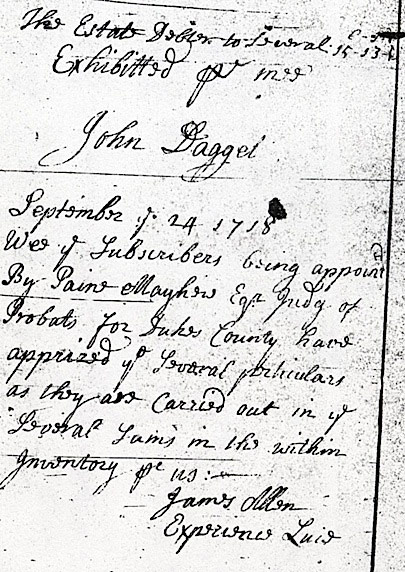 The Estate Debter to Several 15-13-
Exhibitted pr mee
John Dagget
September ye 24 1718
Wee ye Subscribers being appoint
By Paine Mayhew Esqr Judg of
Probats for Dukes County have
apprized ye Several perticulars
as they are Carried out in ye
Several Sums in the within
Inventory pr us:
James Allen
Experience Luce